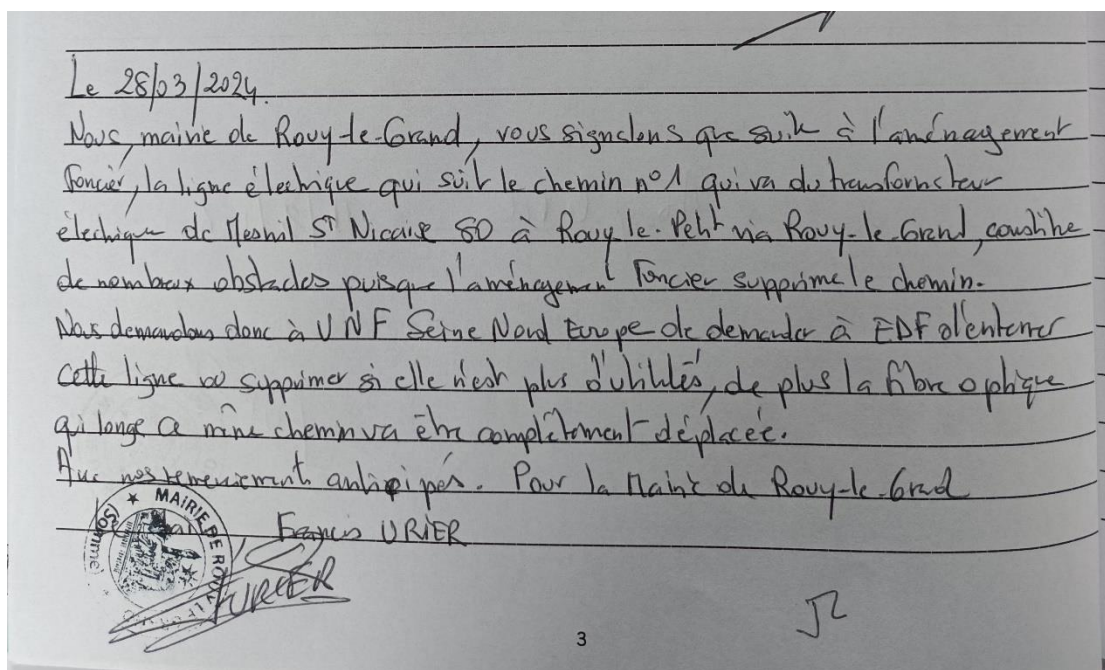 Le 28/03/2024.
Nous, mairie de Rouy-le-Grand, vous signalons que suite à l'aménagement
foncier, la ligne électrique qui suit le chemin n°1 qui va du transformateur
électrique de Mesnil St Nicaise 80 à Rouy-le-Petit via Rouy-le-Grand, constitue
de nombreux obstacles puisque l'aménagement foncier supprime le chemin.
Nous demandons donc à VNF Seine Nord Europe de demander à EDF d'enterrer
cette ligne ou supprimer si elle n'est plus d'utilités, de plus la fibre optique
qui longe ce même chemin va être complètement déplacée.
Avec nos remerciement anticipés. Pour la Mairie de Rouy-le-Grand
Francis URIER
MAIRIE DE ROUY LE
(Somme)
FURIER
3